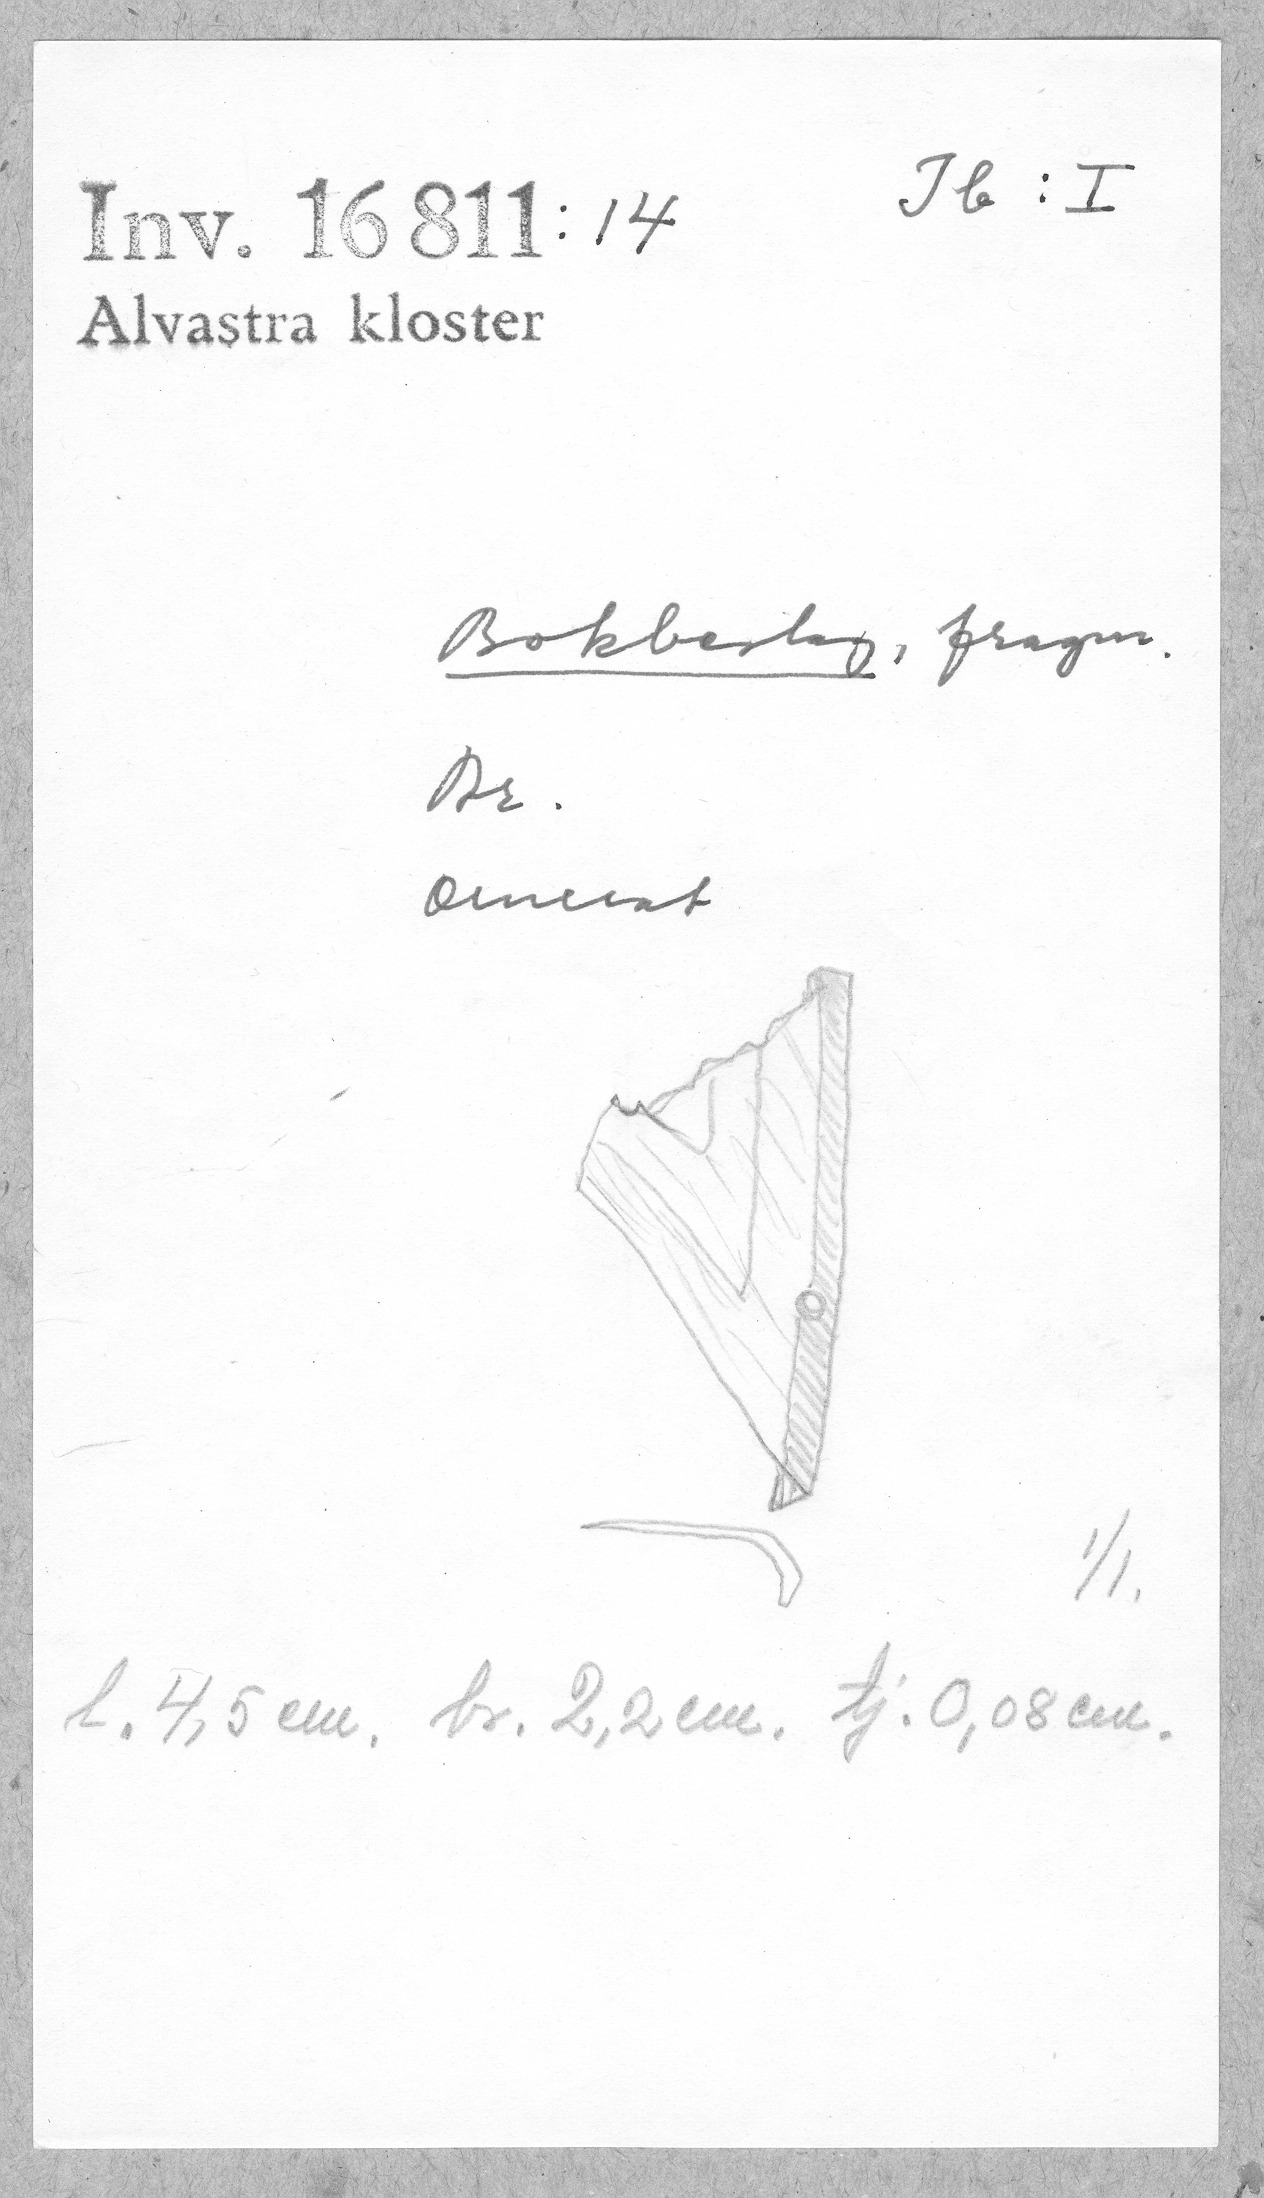 Inv. 16 811:14
Ib : I
Alvastra kloster
Bokbeslag, fragm.
Br.
Ornerat
1/1.
l. 4,5 cm. br. 2,2 cm. tj. 0,08 cm.